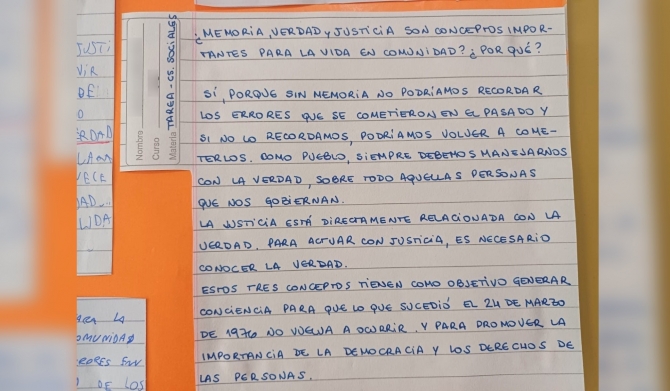 JUSTI
VIR
DE
O
ERDAD
LA
VECE
DAD
UDA
ARA LA
OMUNIDAD
RORES EN
DE LOS
Nombre
Curso
Materia TAREA - CS. SOCIALES
¿MEMORIA, VERDAD Y JUSTICIA SON CONCEPTOS IMPOR-
TANTES PARA LA VIDA EN COMUNIDAD? ¿POR QUÉ?
SÍ, PORQUE SIN MEMORIA NO PODRÍAMOS RECORDAR
LOS ERRORES QUE SE COMETIERON EN EL PASADO Y
SI NO LO RECORDAMOS, PODRÍAMOS VOLVER A COME-
TERLOS. COMO PUEBLO, SIEMPRE DEBEMOS MANEJARNOS
CON LA VERDAD, SOBRE TODO AQUELLAS PERSONAS
QUE NOS GOBIERNAN.
LA JUSTICIA ESTÁ DIRECTAMENTE RELACIONADA CON LA
VERDAD. PARA ACTUAR CON JUSTICIA, ES NECESARIO
CONOCER LA VERDAD.
ESTOS TRES CONCEPTOS TIENEN COMO OBJETIVO GENERAR
CONCIENCIA PARA QUE LO QUE SUCEDIÓ EL 24 DE MARZO
DE 1976 NO VUELVA A OCURRIR. Y PARA PROMOVER LA
IMPORTANCIA DE LA DEMOCRACIA Y LOS DERECHOS DE
LAS PERSONAS.